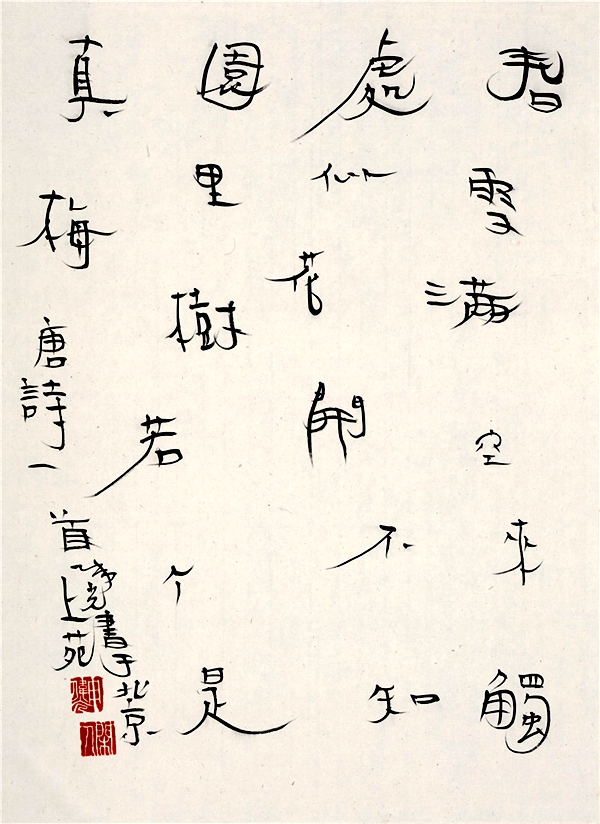 春雪滿空來觸
處似花開不知
園里樹若个是
真梅
唐詩一首
曉光書于北京
上苑